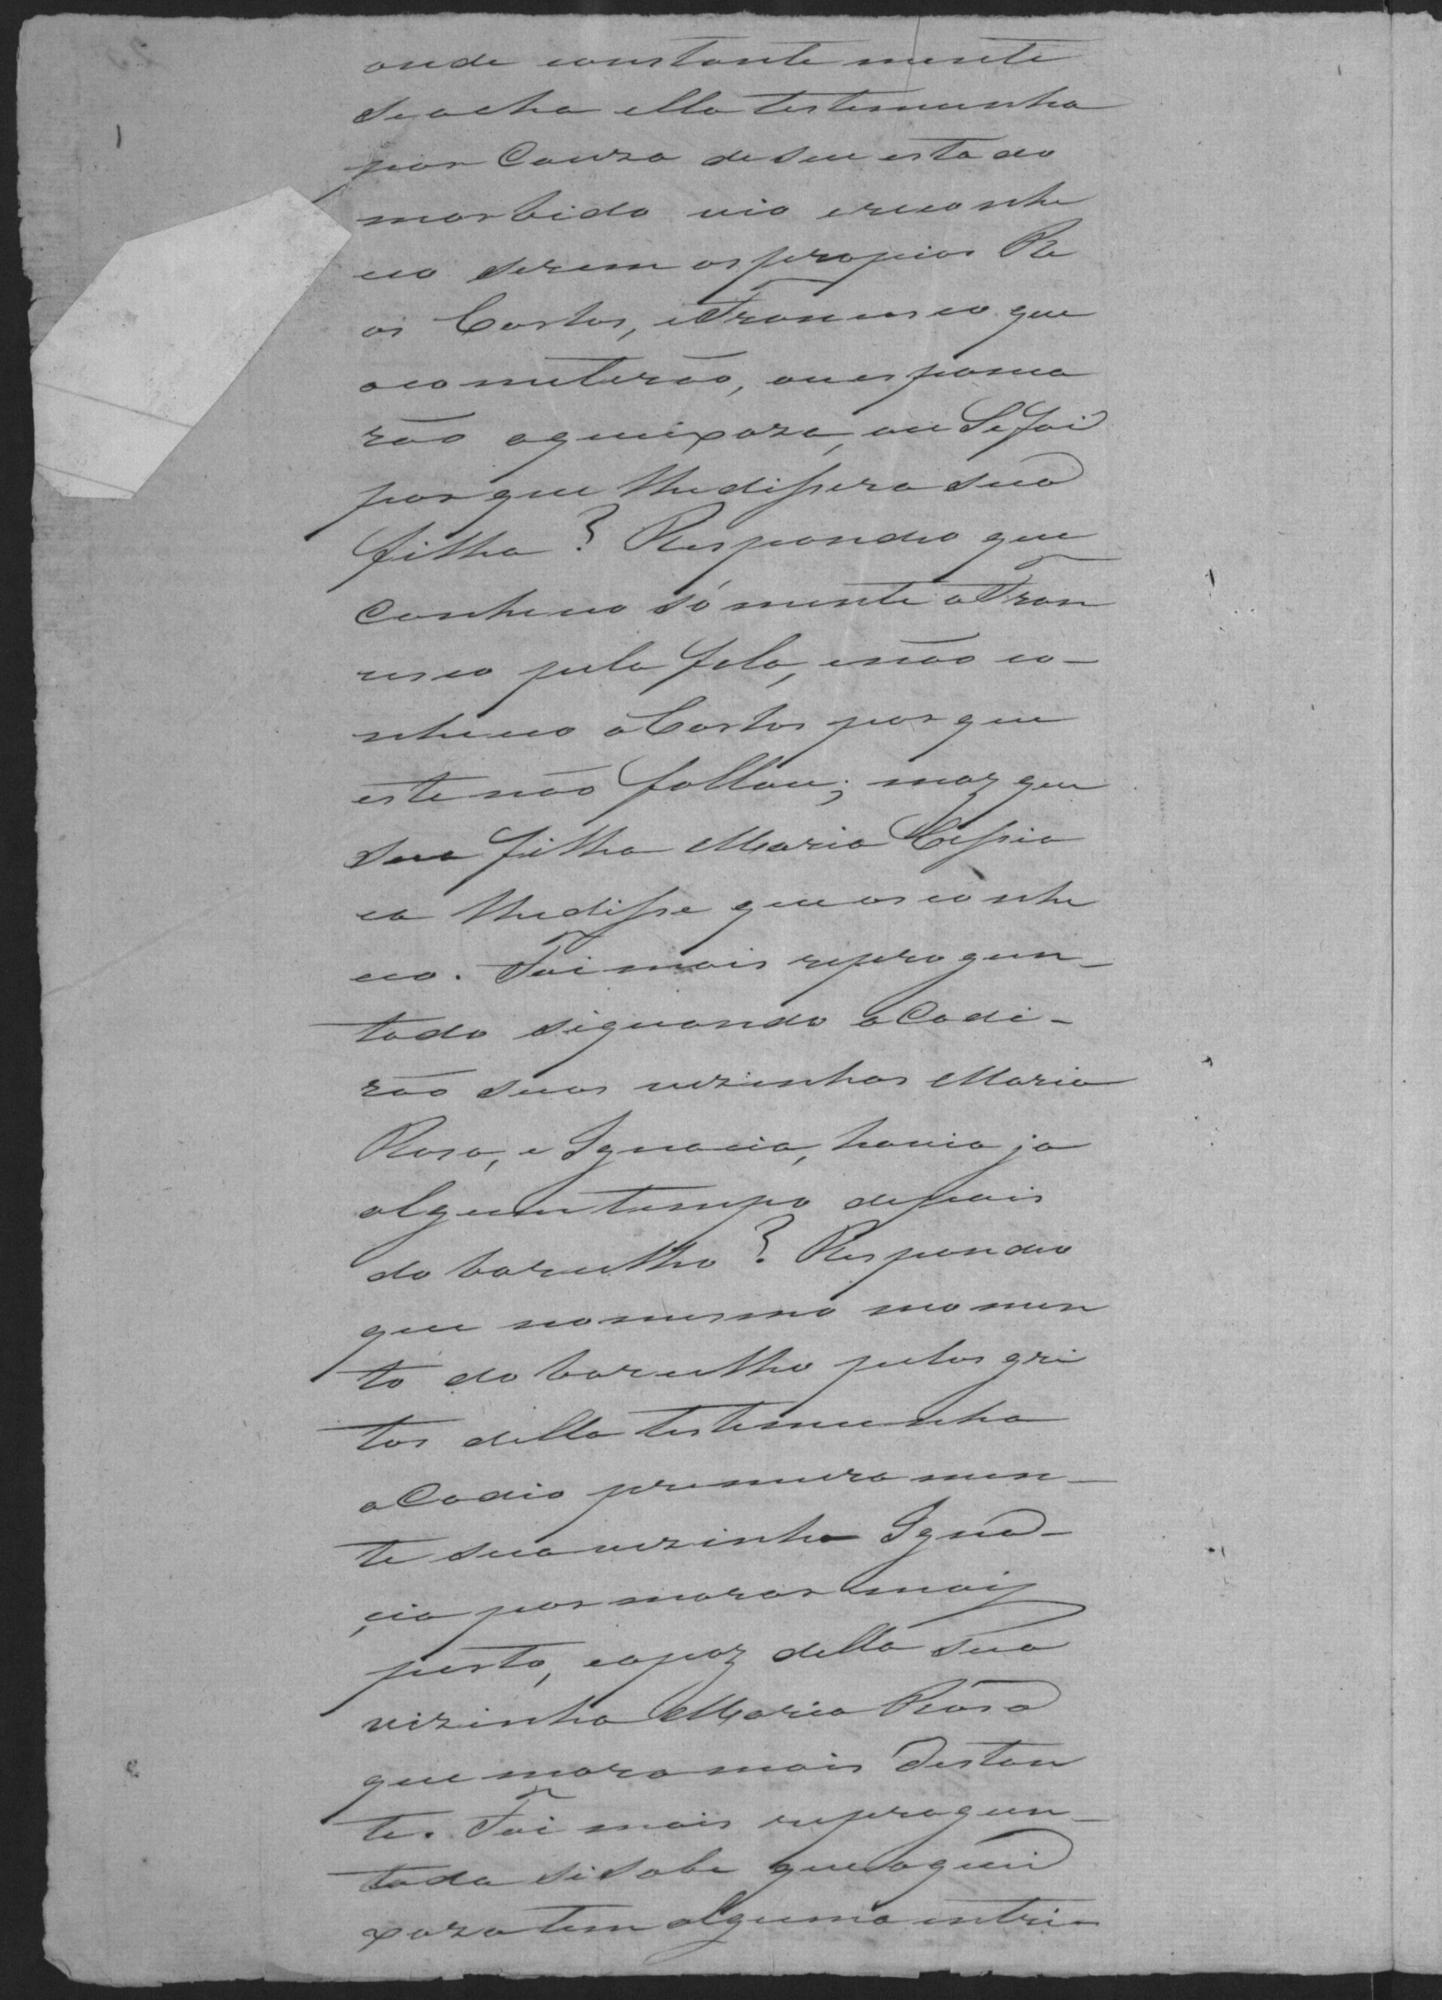 onde constante mente
se acha ella testemunha
por Cauza de seu estado
morbido vio e reconhe
ceo serem os propios Re
os Carlos, e Francisco que
acometerão, ou espanca
rão a queixoza, ou Se foi
por que lhe dissera sua
filha? Respondeo que
Conheceo sómente a Fran
cisco pela fala, e não co-
nheceo a Carlos por que
este não fallou; maz que
sua filha Maria
ca lhe disse que os conhe
ceo. Foi mais repergun-
tado si quando a Codi-
rão suas vezinhas Maria
Rosa, e Ignacia, havia ja
algum tempo depois
do barulho? Respondeo
que no mesmo momen
to do barulho pelos gri
tos della testemunha
a Codio premeramen-
te sua vezinha Igna-
cia por morar maiz
perto, e apoz della sua
vizinha Maria Rosa
que mora mais Distan
te. Foi mais repergun-
tada si sabe que a quei
xoza tem alguma intri-